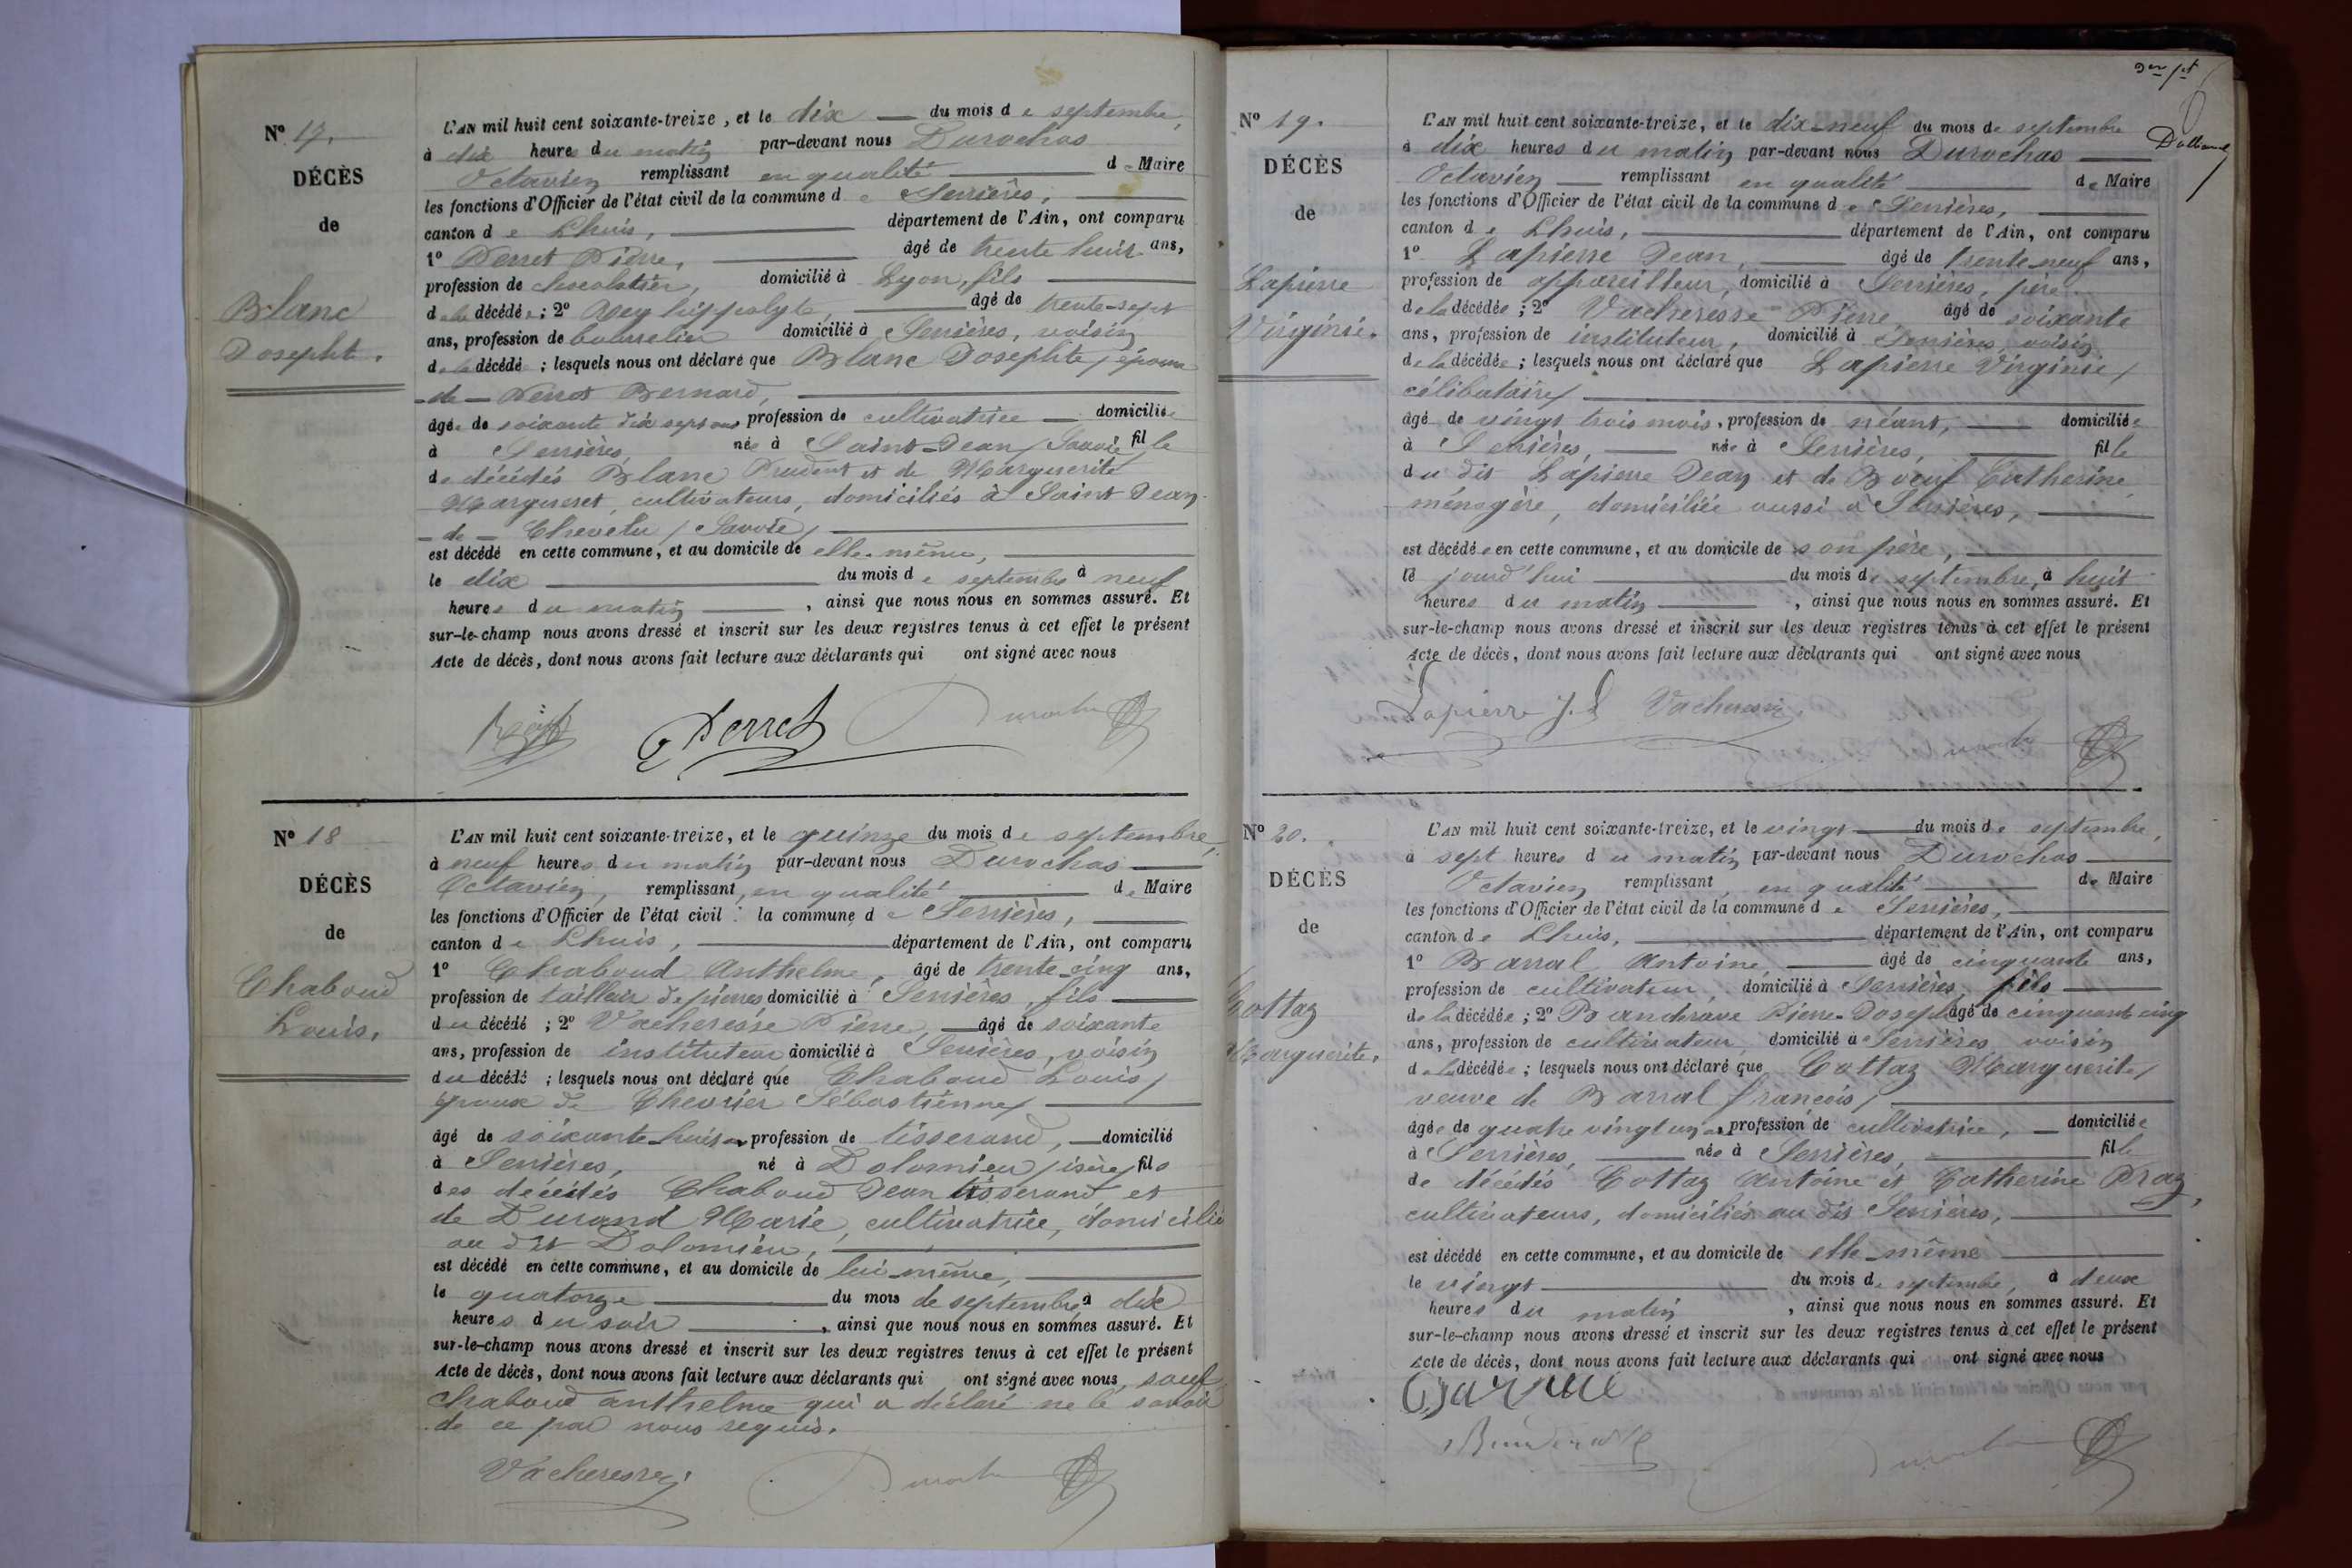 N° 17.
DÉCÈS
de
Blanc
Josephte.
L'AN mil huit cent soixante-treize, et le dix du mois de septembre,
à dix heures du matin par-devant nous Durochas
Octavien remplissant en qualité de Maire
les fonctions d'Officier de l'état civil de la commune de Serrières,
canton de Lhuis, département de l'Ain, ont comparu
1° Perret Pierre, âgé de trente huit ans,
profession de chocolatier, domicilié à Lyon, fils
de la décédée; 2° Rey hippolyte, âgé de trente-sept
ans, profession de bourrelier domicilié à Serrières, voisin
de la décédé; lesquels nous ont déclaré que Blanc Josephte, épouse
de Perret Bernard,
âgée de soixante dix sept ans profession de cultivatrice domiciliée
à Serrières, née à Saint-Jean (Savoie) fille
de décédés Blanc Prudent et de Marguerite
Margueret, cultivateurs, domiciliés à Saint Jean
de Chevelu (Savoie)
est décédé en cette commune, et au domicile de elle-même,
le dix du mois de septembre à neuf
heures du matin, ainsi que nous nous en sommes assuré. Et
sur-le-champ nous avons dressé et inscrit sur les deux registres tenus à cet effet le présent
Acte de décès, dont nous avons fait lecture aux déclarants qui ont signé avec nous
Perret
N° 18
DÉCÈS
de
Chaboud
Louis.
L'AN mil huit cent soixante-treize, et le quinze du mois de septembre,
à neuf heures du matin par-devant nous Durochas
Octavien, remplissant, en qualité de Maire
les fonctions d'Officier de l'état civil la commune de Serrières,
canton de Lhuis, département de l'Ain, ont comparu
1° Chaboud Anthelme, âgé de trente-cinq ans,
profession de tailleur de pierres domicilié à Serrières, fils
du décédé; 2° Vacheresse Pierre, âgé de soixante
ans, profession de instituteur domicilié à Serrières, voisin
du décédé; lesquels nous ont déclaré que Chaboud Louis,
époux de Chevrier Sébastienne,
âgé de soixante-huit ans profession de tisserand, domicilié
à Serrières, né à Dolomieu (isère) fils
des décédés Chaboud Jean tisserand et
de Durand Marie, cultivatrice, domiciliés
au dit Dolomieu,
est décédé en cette commune, et au domicile de lui-même,
le quatorze du mois de septembre à dix
heures du soir, ainsi que nous nous en sommes assuré. Et
sur-le-champ nous avons dressé et inscrit sur les deux registres tenus à cet effet le présent
Acte de décès, dont nous avons fait lecture aux déclarants qui ont signé avec nous, sauf
Chaboud anthelme qui a déclaré ne le savoir
de ce par nous requis.
Vacheresse
N° 19.
DÉCÈS
de
Lapierre
Virginie.
L'AN mil huit cent soixante-treize, et le dix-neuf du mois de septembre
à dix heures du matin par-devant nous Durochas
Octavien remplissant en qualité de Maire
les fonctions d'Officier de l'état civil de la commune de Serrières,
canton de Lhuis, département de l'Ain, ont comparu
1° Lapierre Jean, âgé de trente neuf ans,
profession de appareilleur, domicilié à Serrières, père
de la décédée; 2° Vacheresse Pierre, âgé de soixante
ans, profession de instituteur, domicilié à Serrières, voisin
de la décédée; lesquels nous ont déclaré que Lapierre Virginie,
célibataire,
âgé de vingt trois mois, profession de néant, domiciliée
à Serrières, née à Serrières, fille
du dit Lapierre Jean et de Boeuf Catherine
ménagère, domiciliée aussi à Serrières,
est décédée en cette commune, et au domicile de son père,
le jourd'hui du mois de septembre, à huit
heures du matin, ainsi que nous nous en sommes assuré. Et
sur-le-champ nous avons dressé et inscrit sur les deux registres tenus à cet effet le présent
Acte de décès, dont nous avons fait lecture aux déclarants qui ont signé avec nous
Lapierre J. Vacheresse
N° 20.
DÉCÈS
de
Cottaz
Marguerite.
L'AN mil huit cent soixante-treize, et le vingt du mois de septembre,
à sept heures du matin par-devant nous Durochas
Octavien remplissant, en qualité de Maire
les fonctions d'Officier de l'état civil de la commune de Serrières,
canton de Lhuis, département de l'Ain, ont comparu
1° Barral Antoine, âgé de cinquante ans,
profession de cultivateur, domicilié à Serrières, fils
de la décédée; 2° Pierre-Joseph âgé de cinquante cinq
ans, profession de cultivateur, domicilié à Serrières voisin
de la décédée; lesquels nous ont déclaré que Cottaz Marguerite,
veuve de Barral françois,
âgée de quatre vingt un ans profession de cultivatrice, domiciliée
à Serrières, née à Serrières, fille
de décédés Cottaz Antoine et Catherine Praz,
cultivateurs, domiciliés au dit Serrières,
est décédé en cette commune, et au domicile de elle-même
le vingt du mois de septembre, à deux
heures du matin, ainsi que nous nous en sommes assuré. Et
sur-le-champ nous avons dressé et inscrit sur les deux registres tenus à cet effet le présent
Acte de décès, dont nous avons fait lecture aux déclarants qui ont signé avec nous